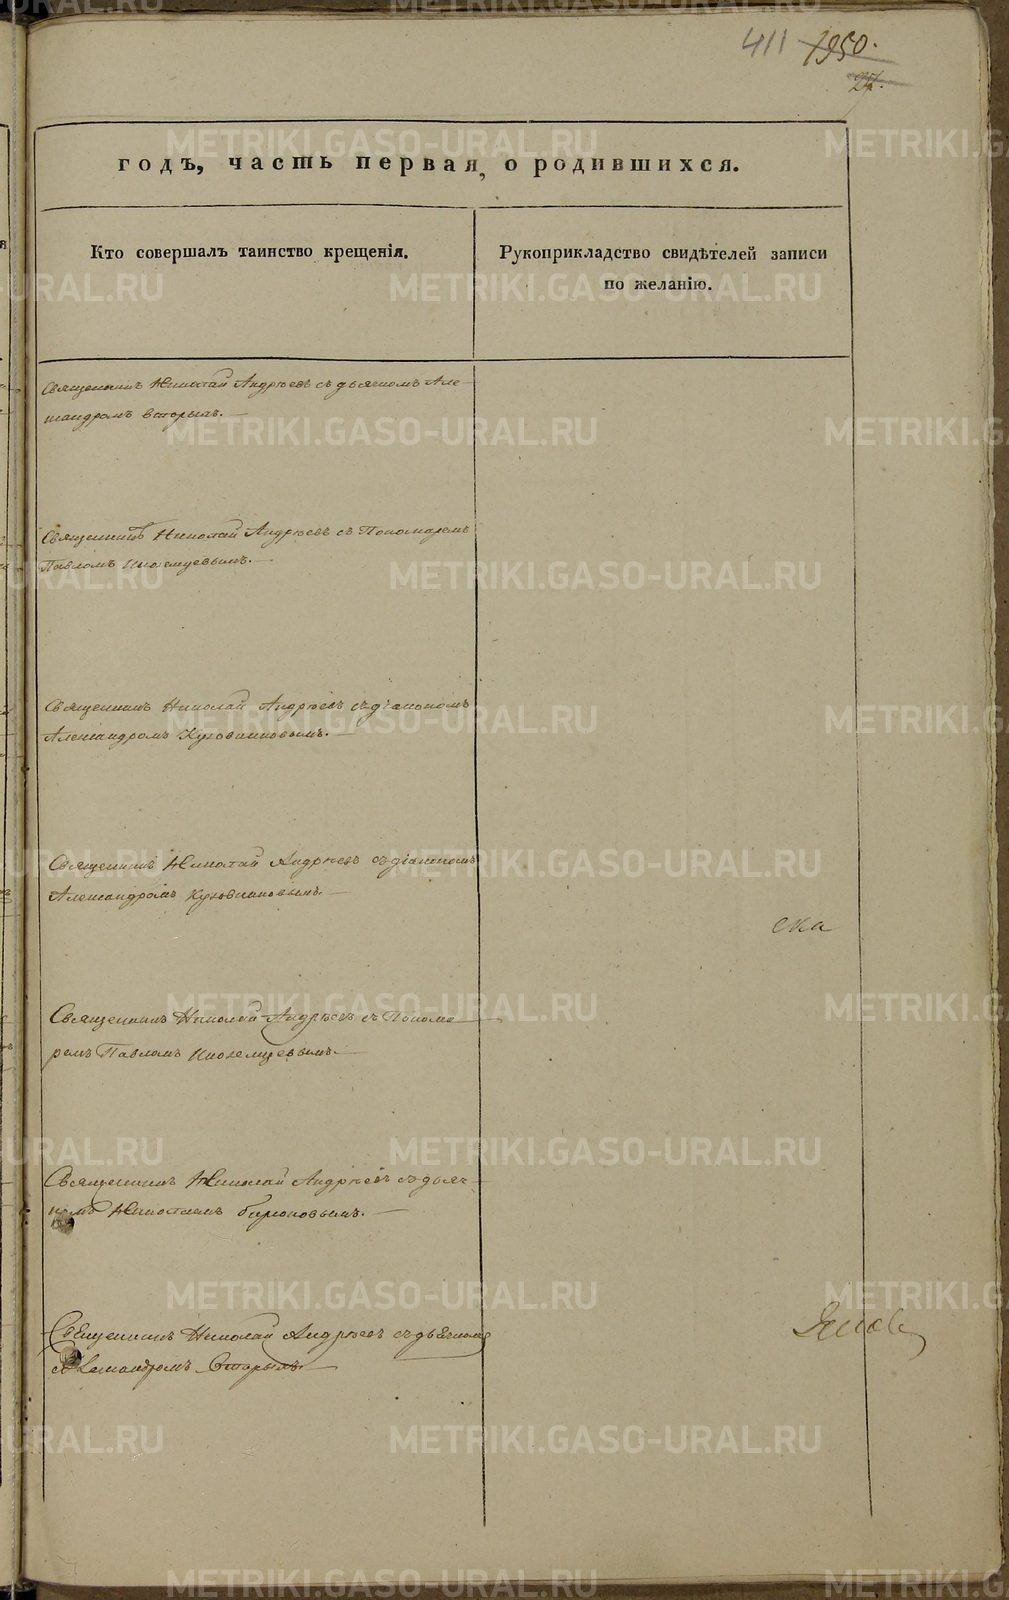 411 1950.
27.
годъ, часть первая, о родившихся.
Кто совершалъ таинство крещенія.
Рукоприкладство свидѣтелей записи
по желанію.
Священникъ Николай Андреевъ съ дьячкомъ Але-
ксандромъ Вторымъ.
Священникъ Николай Андреевъ съ Пономаремъ
Павломъ Иноземцевымъ.
Священникъ Николай Андреевъ съ діакономъ
Александромъ
Священникъ Николай Андреевъ съ діакономъ
Александромъ
ска
Священникъ Николай Андреевъ съ Понома
ремъ Павломъ Иноземцевымъ.
Священникъ Николай Андреевъ съ дьяч-
комъ
Священникъ Николай Андреевъ съ дьячкомъ
Александромъ Вторымъ.
METRIKI.GASO-URAL.RU